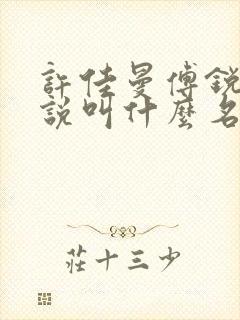 許佳曼傅銳
說叫什麼名
莊十三少